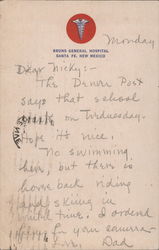 BRUNS GENERAL HOSPITAL
SANTA FE, NEW MEXICO
Monday
Dear Nicky:-
The Denver Post
says that school
on Wednesday.
Hope its nice.
No swimming
here, but there is
horse back riding
and skiing in
time. I ordered
for your camera
Love, Dad